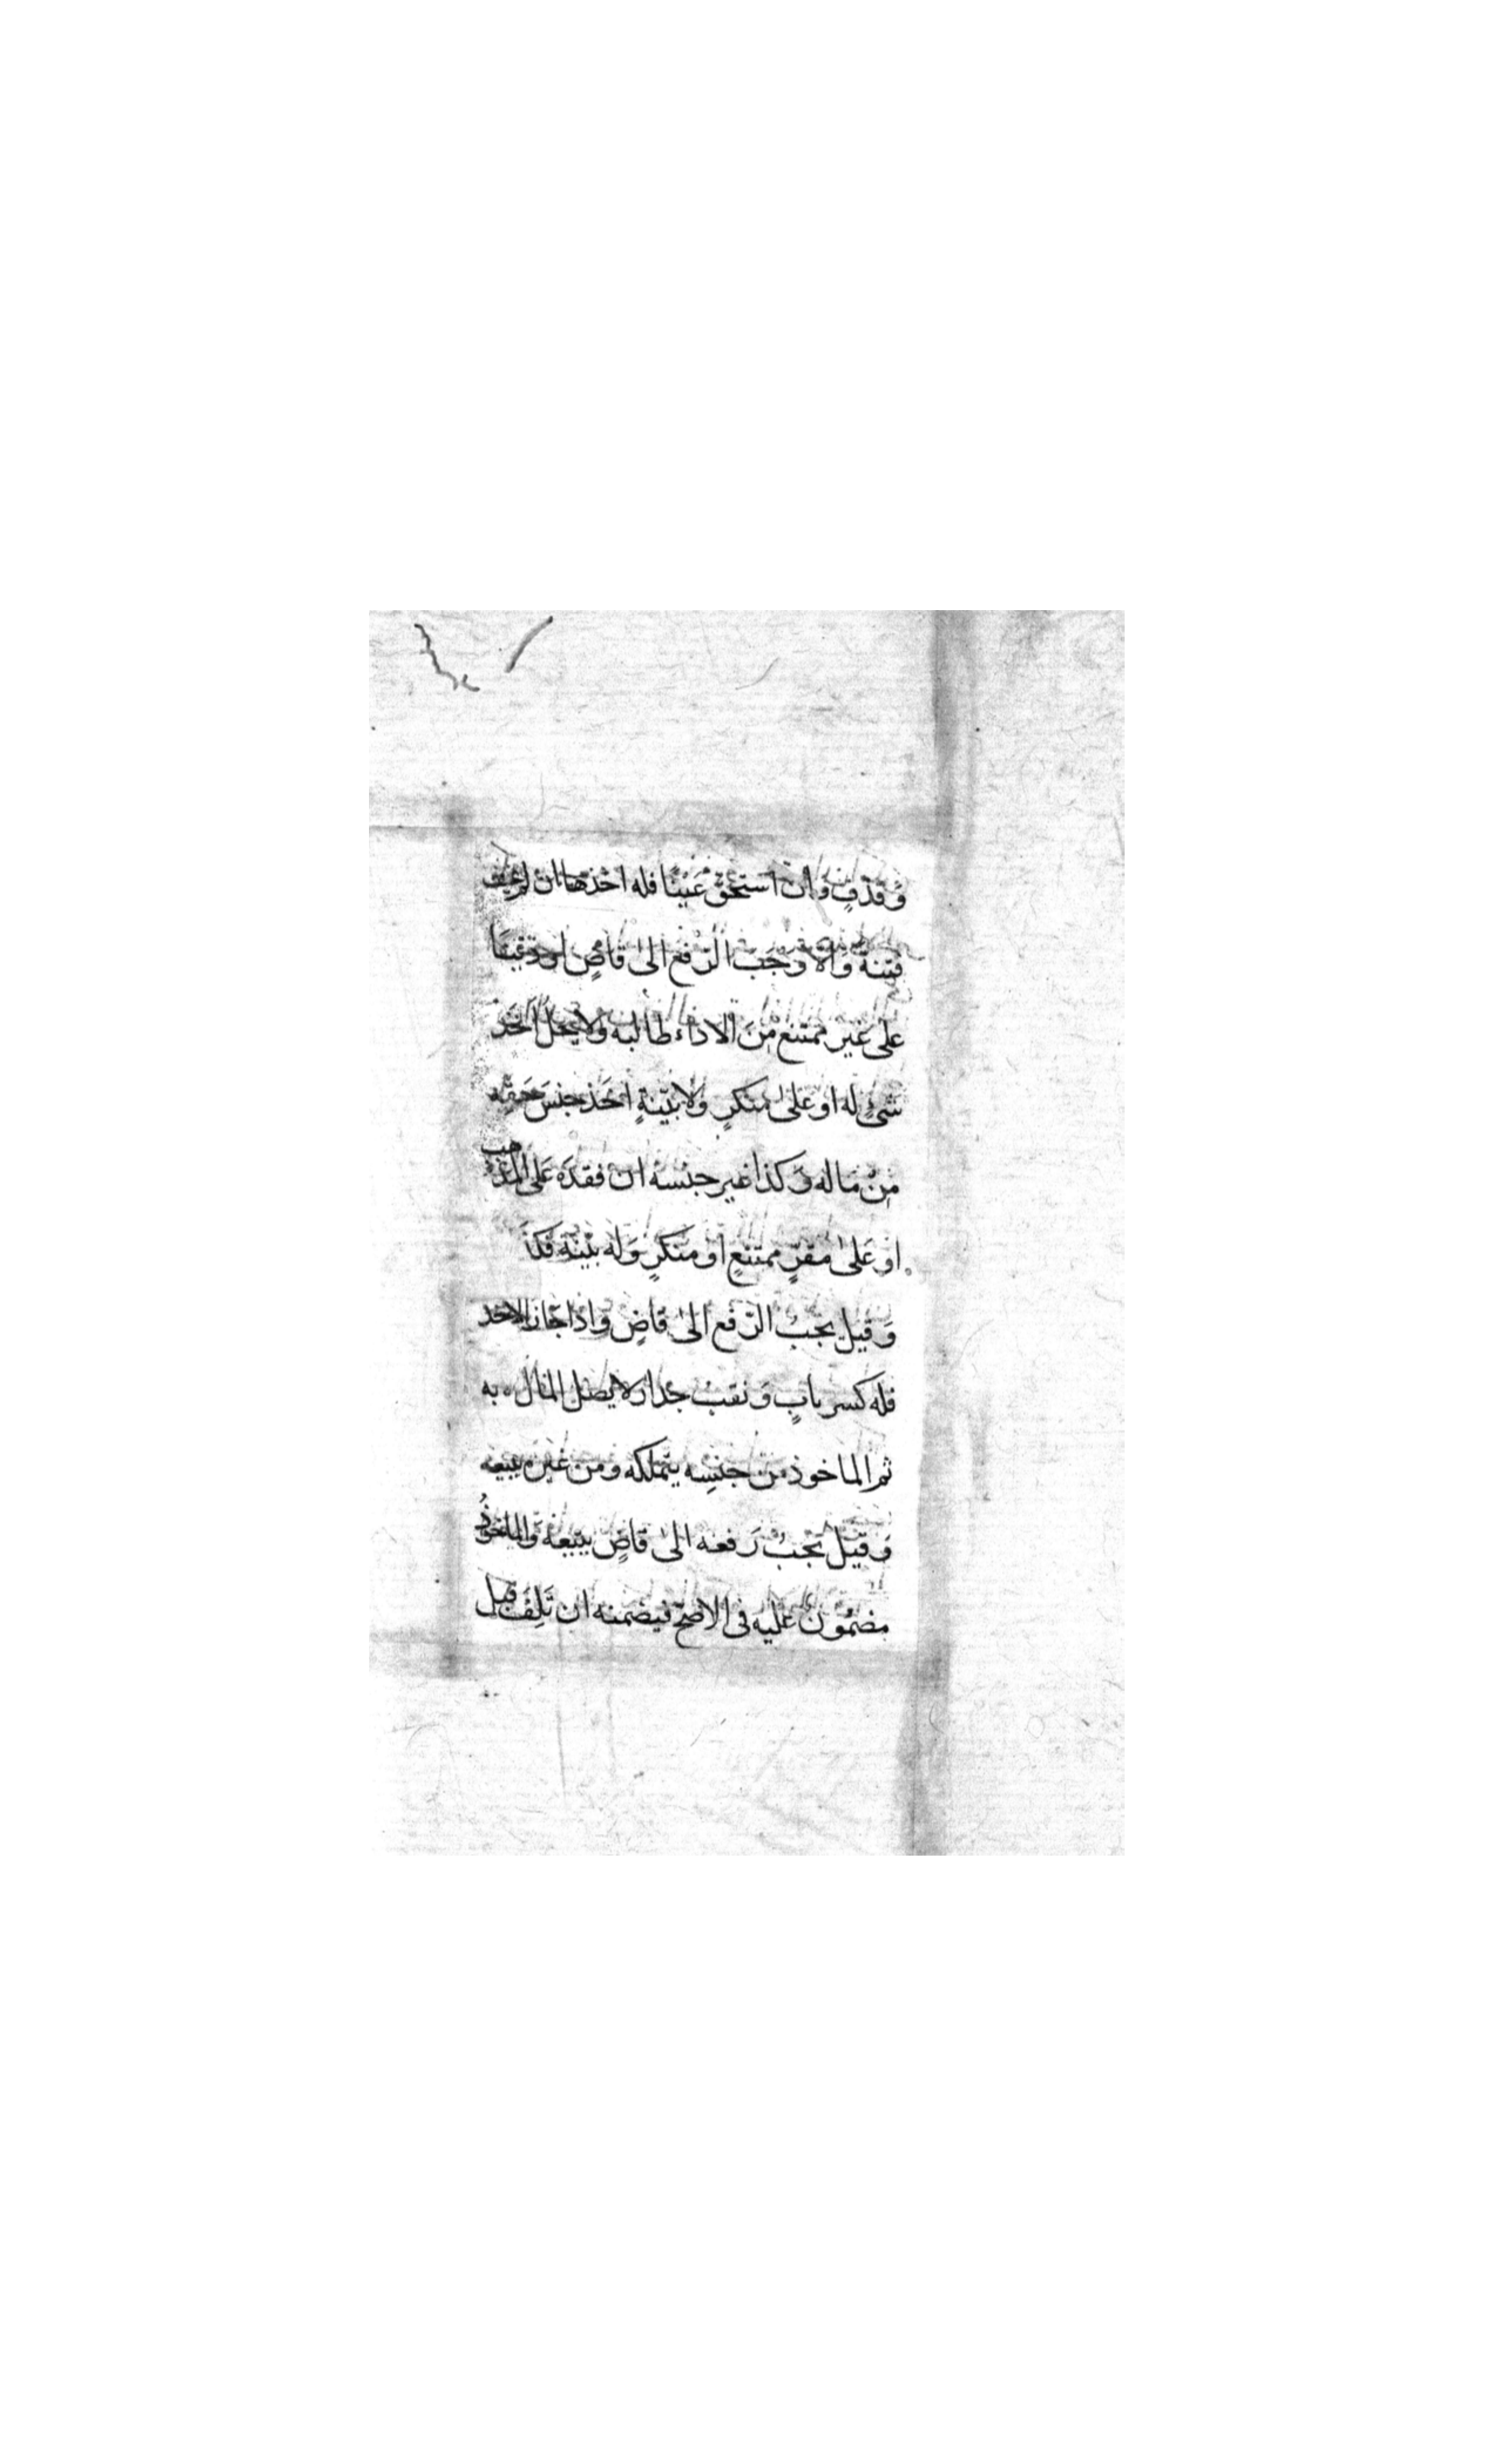 وَقذفٍ وَان استحقّ عَيْنًا فله اخذها ان لم يخف
فتنةً وَالّا وَجَبَ الرّفع الى قاضٍ او دَيْنًا
على غير ممتنع مِنَ الاداء طالبه ولا يحل اخذ
شئٍ له او على منكرٍ ولا بيّنةٍ اخَذ جنسَ حَقّه
مِنْ مَاله وَكذا غير جنسه ان فقدَه عَلى المذهب
او عَلىٰ مقرٍّ ممتنعٍ او منكرٍ وَله بيّنة فكذَ
وَقيل يجبُ الرّفع الىٰ قاضٍ وَاذا جَاز الاخذ
فله كسر بابٍ وَنقبُ جدار لا يصل المال ه به
ثم الماخوذ من جنسِه يتملكه ومن غيره يبيعه
وَقيل يجبُ رَفعه الىٰ قاضٍ يبيعه وَالماخوذُ
مضمُوْن عليه فى الاصحّ فيضمنه ان تَلِفَ قبل